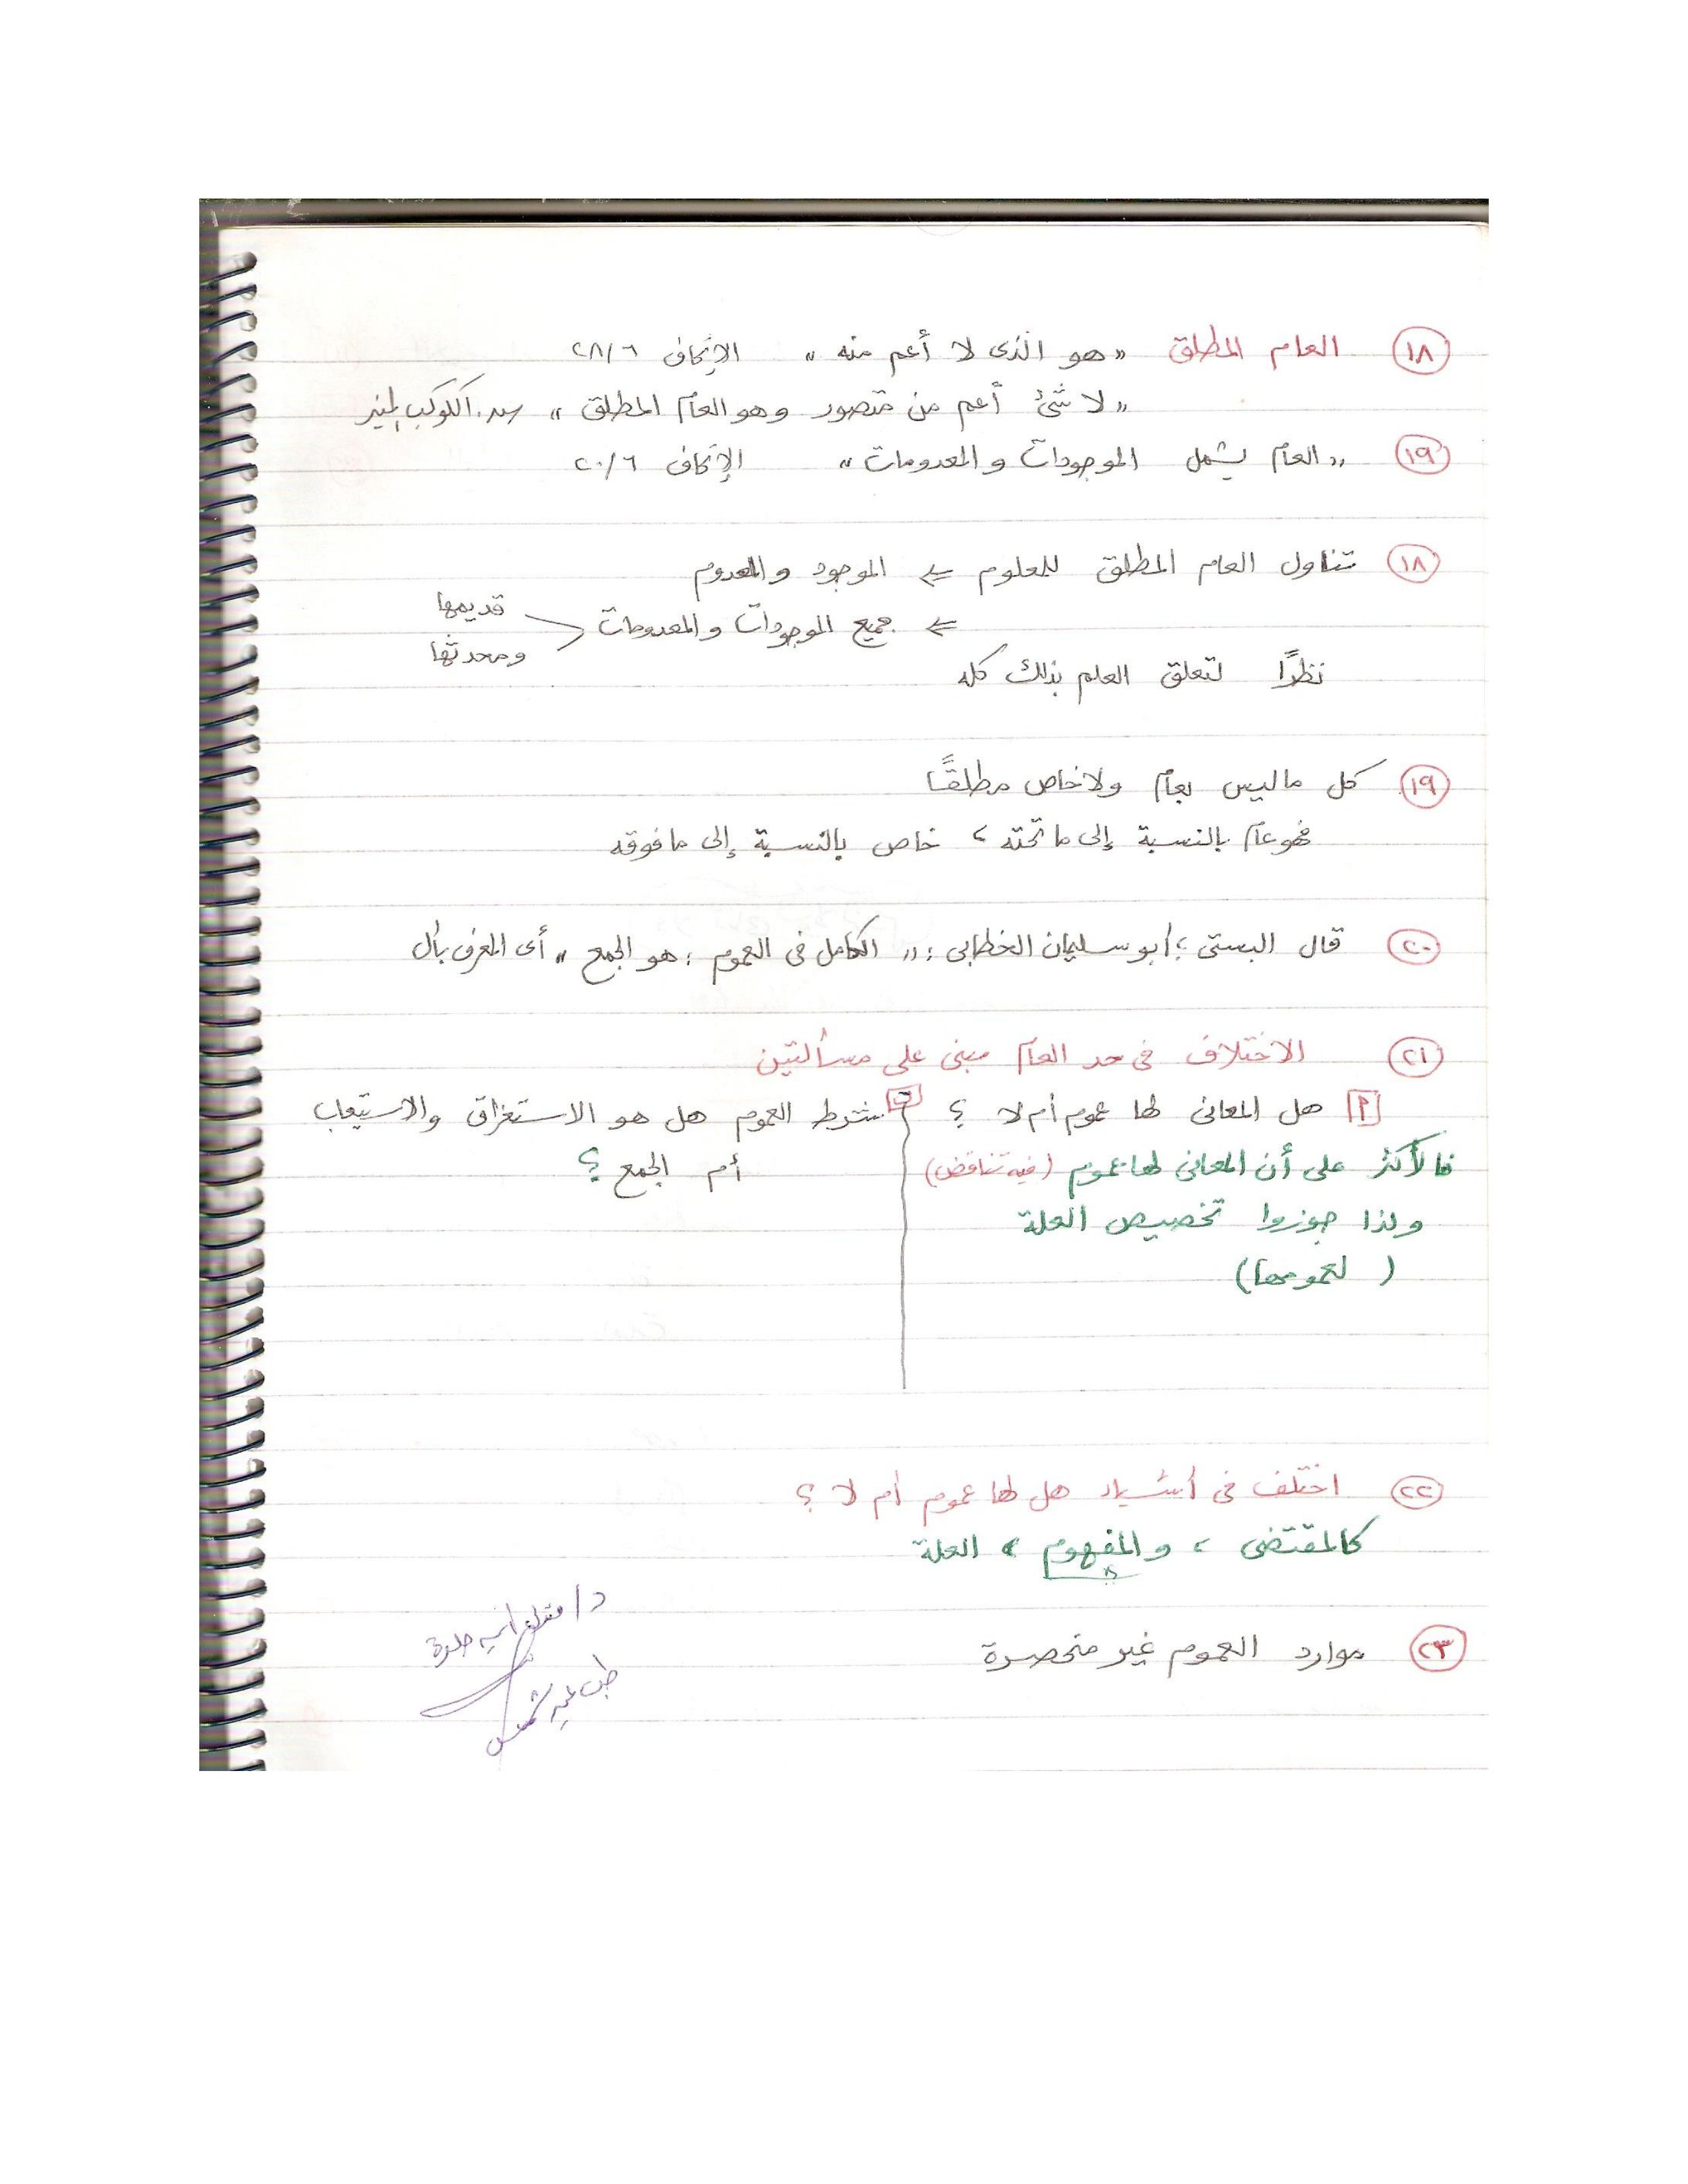 ١٨ العام المطلق "هو الذى لا أعم منه" الإتحاف ٢٨/٦
"لا شئ أعم من متصور وهو العام المطلق" الكوكب المنير
١٩ "العام يشمل الموجودات والمعدومات" الإتحاف ٢٠/٦
١٨ تناول العام المطلق للمعلوم ⇐ الموجود والمعدوم
⇐ جميع الموجودات والمعدومات < قديمها
ومحدثها
نظرًا لتعلق العلم بذلك كله
١٩ كل ما ليس بعام ولا خاص مطلقًا
فهو عام بالنسبة إلى ما تحته، خاص بالنسبة إلى ما فوقه
٢٠ قال البستى؛ أبو سليمان الخطابى: "الكامل فى العموم: هو الجمع" أى المعرف بأل
٢١ الاختلاف فى حد العام مبنى على مسألتين
أ هل المعانى لها عموم أم لا ؟
فالأكثر على أن المعانى لها عموم (فيه تناقض)
ولذا جوزوا تخصيص العلة
(لعمومها)
ب شرط العموم هل هو الاستغراق والاستيعاب
أم الجمع ؟
٢٢ اختلف فى أشياء هل لها عموم أم لا ؟
كالمقتضى، والمفهوم، العلة
٢٣ موارد العموم غير منحصرة
د/ حلاوة
طب عين شمس